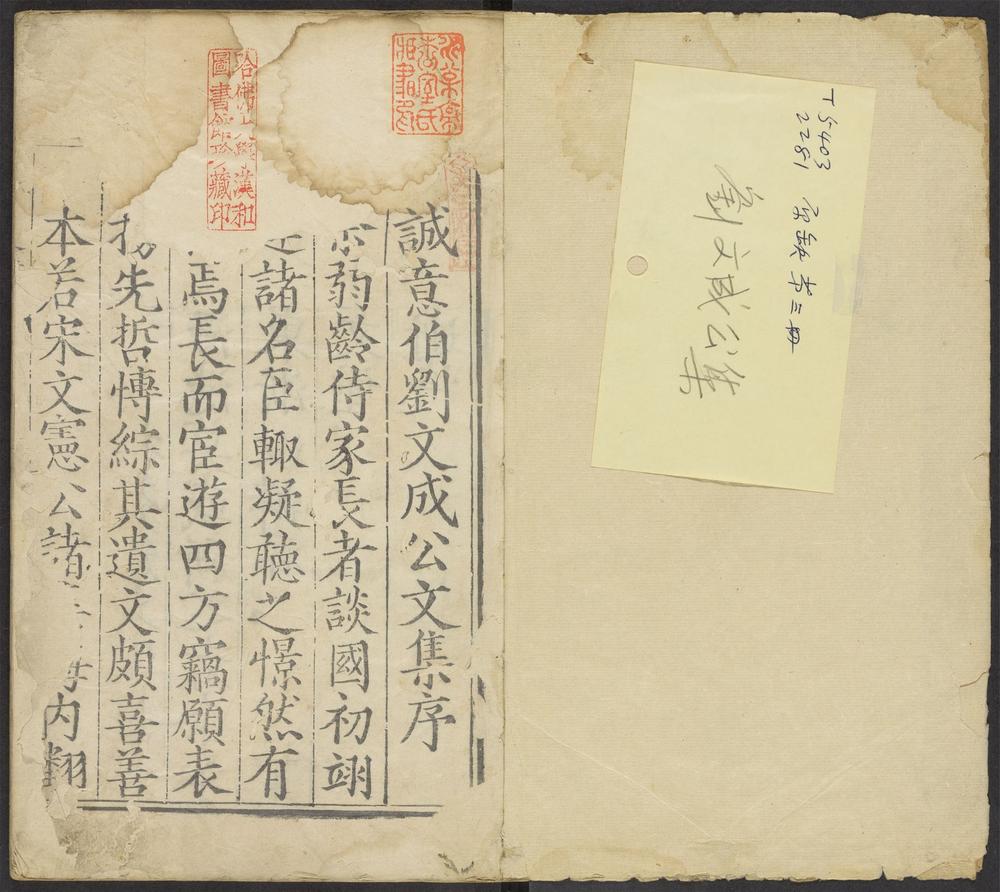 T5403
2281
劉文成公集
誠意伯劉文成公文集序
弱齡侍家長者談國初翊
諸名臣輙凝聽之憬然有
焉長而宦遊四方竊願表
揚先哲愽綜其遺文頗喜善
本若宋文憲公諸海内翔
哈佛大學漢和
圖書館珍藏印